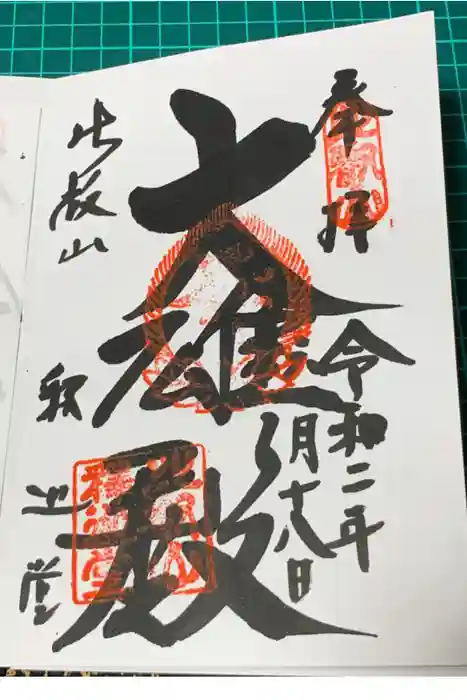 奉拝
令和二年
月十八日
大雄殿
比叡山
釈迦堂